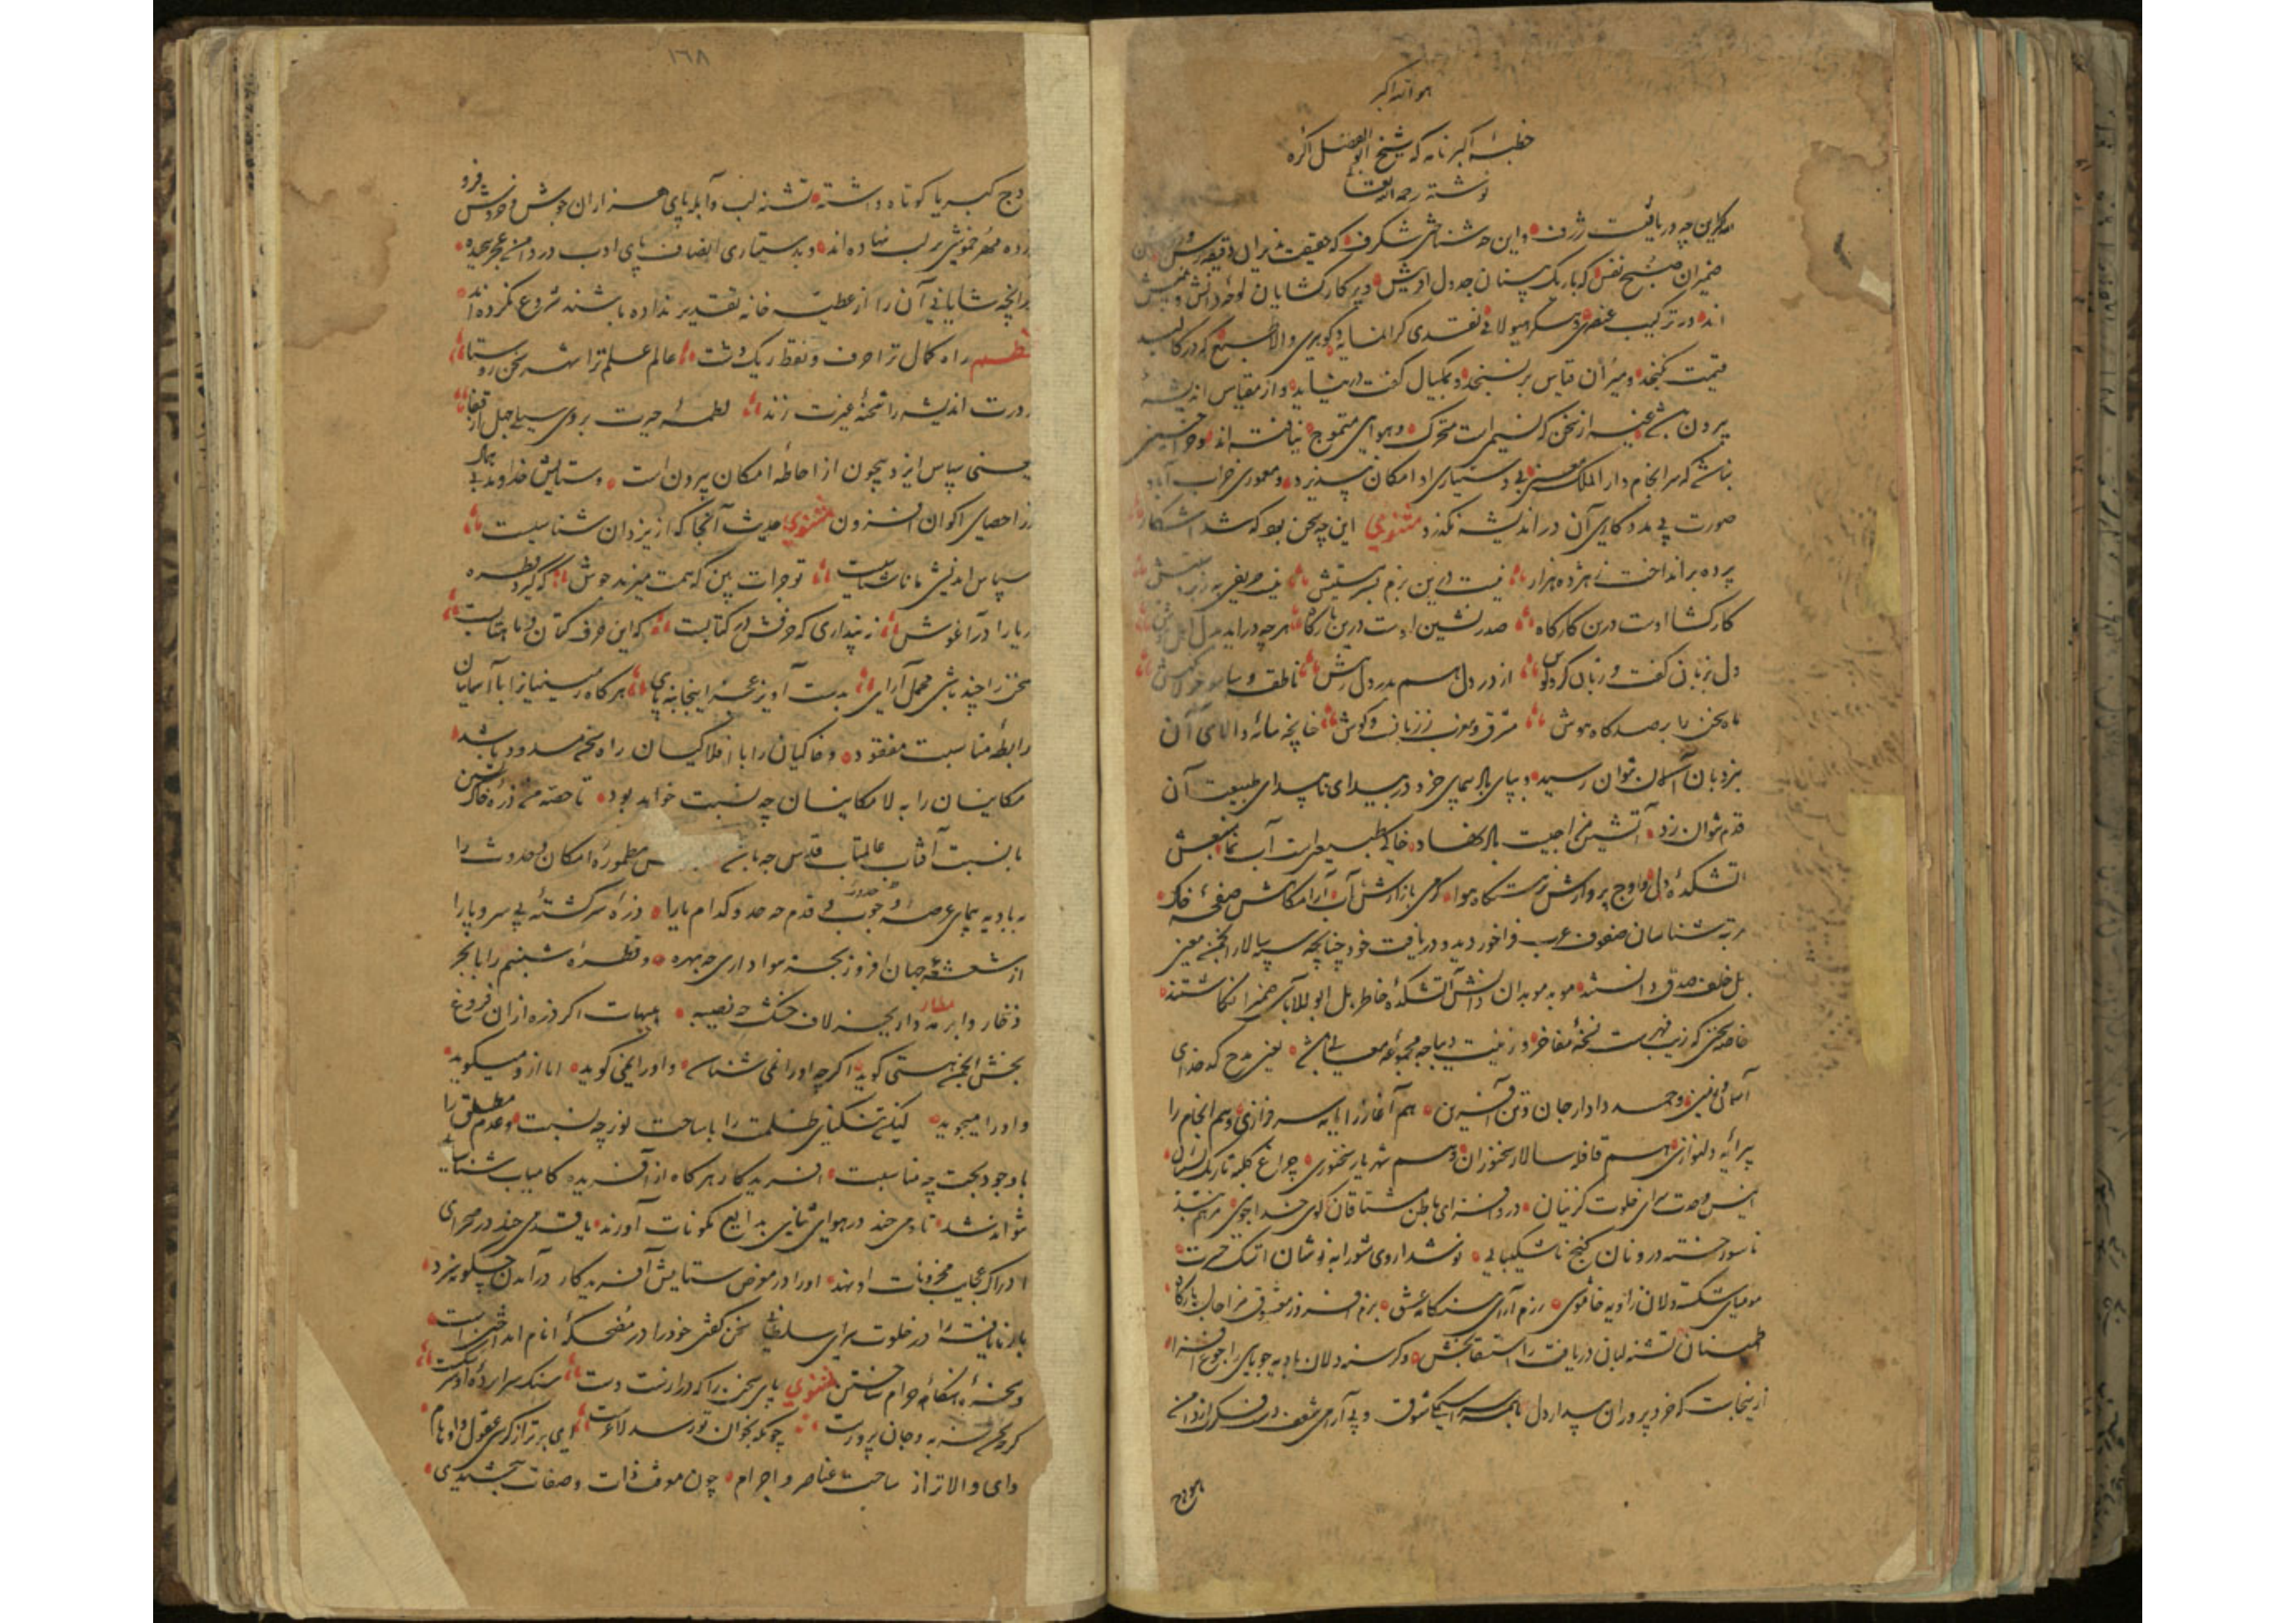 هو الله اکبر
خطبهٔ اکبرنامه که شیخ ابوالفضل اکره
نوشته رحمه الله تعا
الله اکبر این چه دریافتیست ژرف و این چه شناختی شگرف که حقیقت پذیران دقیقه رس و
ضمیران صبح نفس که باریک بینان جدول آفرینش و پرکار کشایان لوحهٔ دانش و بینش
اند در ترکیب عنصری و پیکر هیولانی نقدی گرانمایه و گوهری والا که در کالبد
قیمت نگنجد و میزان قیاس برنسنجد و بمکیال گفت در نیاید و از مقیاس اندیشه
بیرون باشد غیر از سخن که نسیمیست متحرک و هوای متموج نیافته اند و چرا چنین
نباشد که سرانجام دار الملک معنی بی دستیاری او امکان نپذیرد و معموری خراب آباد
صورت بی مددگاری آن در اندیشه نگذرد مثنوی این چه سخن بود که شد آشکار
پرده برانداخت ز هژده هزار نیست درین بزم بسرمستیش نیست حریفی به زبردستیش
کارکشا اوست درین کارگاه صدرنشین اوست درین بارگاه هر چه درآید بدل اهل هوش
دل بزبان گفت و زبان گفت بگوش از در دل هم بدر دل رهش ناطقه و سامعه جولانگهش
ماه سخن را برصدگاه هوش مشرق و مغرب ز زبان و گوش چنانچه پایهٔ والای آن
بنردبان آسمان نتوان رسید و بپای بادیه پیمای خرد در بیدای ناپیدای طبیعت آن
قدم نتوان زد آتشین مزاجیست باد نهاد خاکی طبیعتیست آب نما منبعش
آتشکدهٔ دل و اوج پروازش نزهتگاه هوا گرمی بازارش آب آرامگاهش صفحهٔ خاک
مرتبه شناسان صفوف عرب فراخور دید و دریافت خود چنانچه سپه سالار انجمن معنی
بل خلف صدق دانسته موبد موبدان دانش آتشکدهٔ خاطر بل ابو الآبای ضمیر انگاشتند
خاصه سخنی که زیب فهرست نسخهٔ مفاخر و زینت دیباجهٔ مجموعهٔ معالی باشد یعنی مدح کدخدای
آسمان و زمین و حمد دادار جان و تن آفرین هم آغاز را پایهٔ سرفرازی و هم انجام را
پیرایهٔ دلنوازی هم قافله سالار سخنوران و هم شهریار سخنوری چراغ کلبهٔ تاریک نشینان
انیس وحدت سرای خلوت گزینان دردافزای باطن مشتاقان کوی خداجوی مرهم بند
ناسور خسته درونان کنج ناشکیبایی نوشداروی شورابه نوشان اشک حسرت
مومیای شکسته دلان زاویهٔ خاموشی رزم آرای هنگامهٔ عشق بزم افروز معشوق مزاجان بارگاه
اطمینان تشنه لبان دریافت را استسقابخش و گرسنه دلان بادیهٔ جویای را جوع افزا
ازینجاست که خردپروران بیدار دل با همه سراسیمگی شوق و بی آرامی شغف دست فکر از دامن
بام اوج
١٦٨
اوج کبریا کوتاه داشته تشنه لب و آبله پای هزاران جوش و خروش فرو
برده مهر خموشی بر لب نهاده اند و بدستیاری انصاف پای ادب در دامن عجز پیچیده
بدانچه شایانی آن را از عطیه خانهٔ تقدیر نداده باشند شروع نکرده اند
نظم راه کمال ترا حرف و نقط ریگ دشت عالم علم ترا شهر سخن روستا
بر درت اندیشه را شحنهٔ غیرت زند لطمهٔ حیرت بروی سیلی جهل از قفا
یعنی سپاس ایزد بیچون از احاطهٔ امکان بیرون است و ستایش خداوند بی همال
از احصای اکوان افزون مثنوی حدیث آنجا که از یزدان شناسیست
سپاس اندیشی ما ناشناسیست تو جرات بین که همت میزند جوش که گیرد قطره
دریا را در آغوش نه پنداری که حرفش در کتابست که این حرف کتان و ماهتابست
سخن را چند باشی محمل آرای بدست آویز عجز اینجا بنه پای هرگاه زمینیان را با آسمانیان
رابطهٔ مناسبت مفقود و خاکیان را با افلاکیان راه سخن مسدود باشد
مکانیان را به لامکانیان چه نسبت خواهد بود تا حصهٔ ذرهٔ خاک نشین
با نسبت آفتاب عالمتاب قدس چه باشد مطمورهٔ امکان و حدوث را
به بادیه پیمای عرصهٔ وجوب و قدم چه حد و کدام یارا ذرهٔ سرگشتهٔ بی سر و پا را
از شعشعهٔ جهان افروز بجز هواداری چه بهره و قطرهٔ شبنم را با بحر
ذخار و ابر مطار بجز لاف خشک چه نصیب هیهات اگر ذره از آن فروغ
بخش انجمن هستی گوید اگرچه او را نمی شناسد و او را نمی گوید اما ازو میگوید
و او را میجوید لیکن تنگنای ظلمت را با ساحت نور چه نسبت و عدم مطلق را
با وجود بحت چه مناسبت آفریدگار هرگاه از آفریده کامیاب شناسایی
نتواند شد تا دمی چند در هوای نیایش بدایع مکونات آورند یا قدمی چند در صحرای
ادراک عجایب مخزونات او نهند او را در معرض ستایش آفریدگار درآمدن چگونه سزد
بار نایافته را در خلوت سرای سلطانی سخن گفتن خود را در مضحکهٔ انام انداختن است
و سخره هنگامهٔ عوام ساختن مثنوی پای سخن را که درازست دست سنگ سراپردهٔ او سر شکست
گرچه سخن فربه و جان پرورست چونکه بخوان تو رسد لاغرست ای برتر از کرسی عقول و اوهام
و ای والاتر از ساحت عناصر و اجرام چون معرفت ذات و صفات نبخشیدی